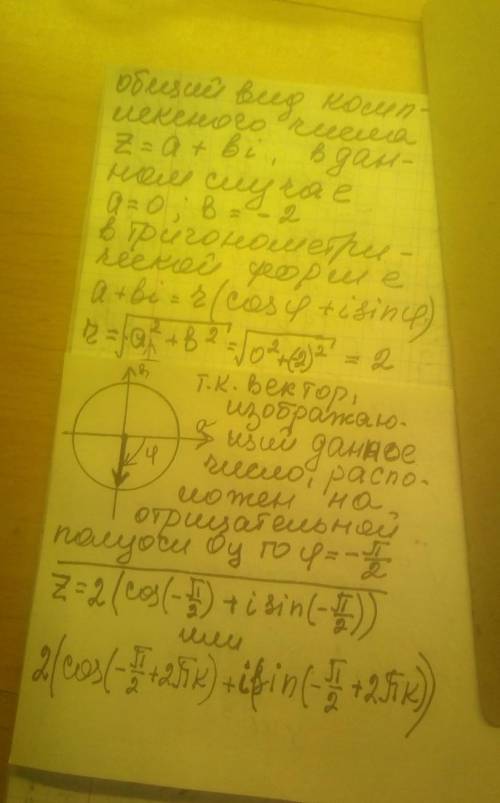 общий вид комп-
лексного числа
z = a + bi, в дан-
ном случае
a=0; b = -2
в тригонометри-
ческой форме
a+bi = r(cosφ + isinφ)
r = √a² + b² = √0²+(-2)² = 2
т.к. вектор,
изображаю-
щий данное
число, распо-
ложен на
отрицательной
полуоси Oy то φ = -π/2
z = 2(cos(-π/2) + i sin(-π/2))
или
2(cos(-π/2+2πk)+i(sin(-π/2+2πk))
b
a
φ